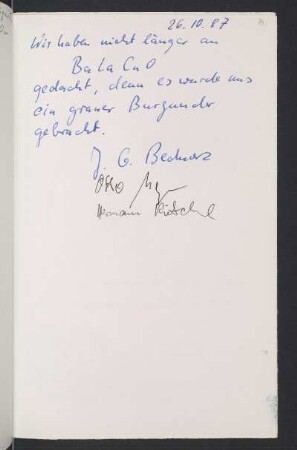 26.10.87
Wir haben nicht länger an
Ba La Cu O
gedacht, denn es wurde uns
ein grauer Burgunder
gebracht.
J. G. Bednorz
Otto
Hermann